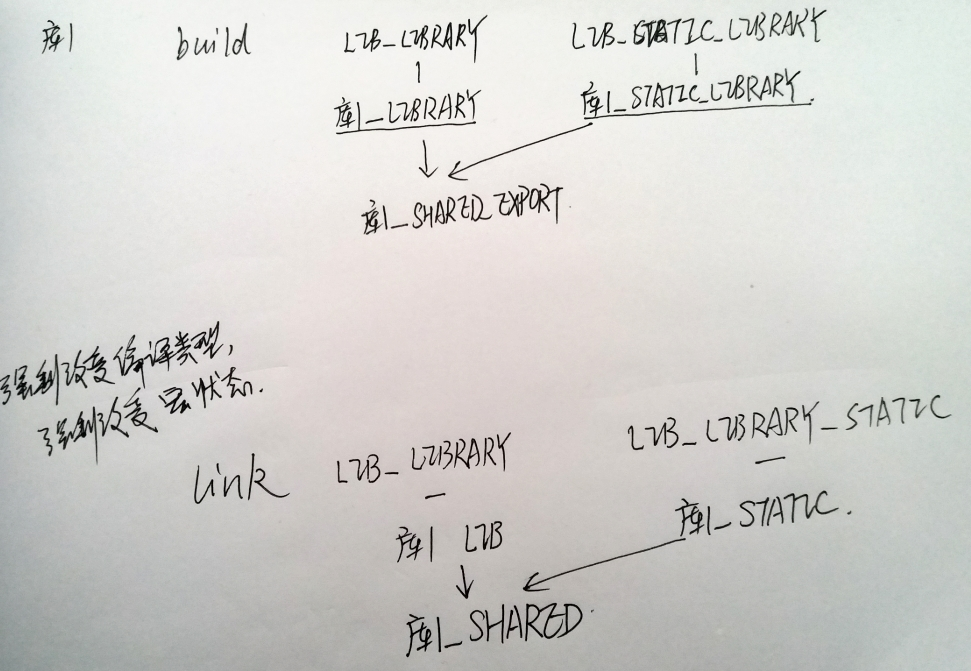 库1 build LIB_LIBRARY LIB_STATIC_LIBRARY
库1_LIBRARY 库1_STATIC_LIBRARY.
库1_SHARED_EXPORT
强制改变编译类型,
强制改变宏状态.
link LIB_LIBRARY LIB_LIBRARY_STATIC
库1 LIB 库1_STATIC.
库1_SHARED